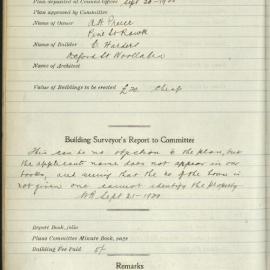 Plan deposited at Council Office Sept 20-1920
Plan approved by Committee
Name of Owner A H Pruce
Pine St Randk
Name of Builder E Harders
Oxford St Woollahra
Name of Architect
Value of Buildings to be erected £20 Cheap
Building Surveyor's Report to Committee
This can be no objection to the plan, but
the applicants name does not appear in our
books, and seeing that the no of the house is
not given one cannot identify the property
Sept 21-1920
Report Book, folio
Plans Committee Minute Book, page
Building Fee Paid 5/-
Remarks